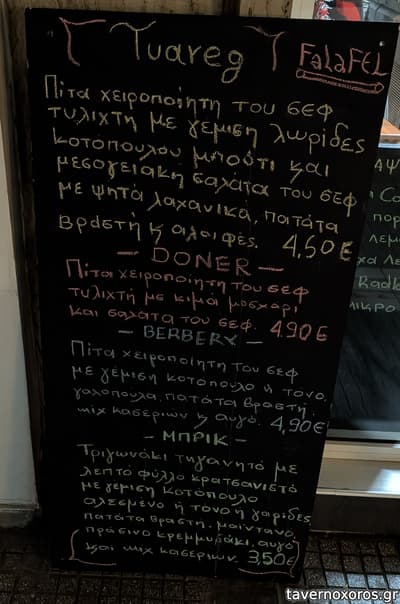 Tuareg
FaLaFEL
Πίτα χειροποίητη του σεφ
τυλιχτή με γέμιση λωρίδες
κοτόπουλου μπούτι και
μεσογειακή σαλάτα του σεφ
με ψητά λαχανικά, πατάτα
βραστή κ αλοιφές. 4,50€
- DONER -
Πίτα χειροποίητη του σεφ
τυλιχτή με κιμά μοσχάρι
και σαλάτα του σεφ. 4.90€
- BERBERY -
Πίτα χειροποίητη του σεφ
με γέμιση κοτόπουλο ή τόνο,
γαλοπούλα, πατάτα βραστή,
mix κασεριων κ αυγό. 4,90€
- ΜΠΡΙΚ -
Τριγωνάκι τηγανητό με
λεπτό φύλλο κρατσανιστό
με γέμιση κοτόπουλο
αλεσμένο ή τόνο ή γαρίδες
πατάτα βραστή, μαϊντανο,
πράσινο κρεμμυδάκι, αυγό
και mix κασεριων. 3,50€
tavernoxoros.gr